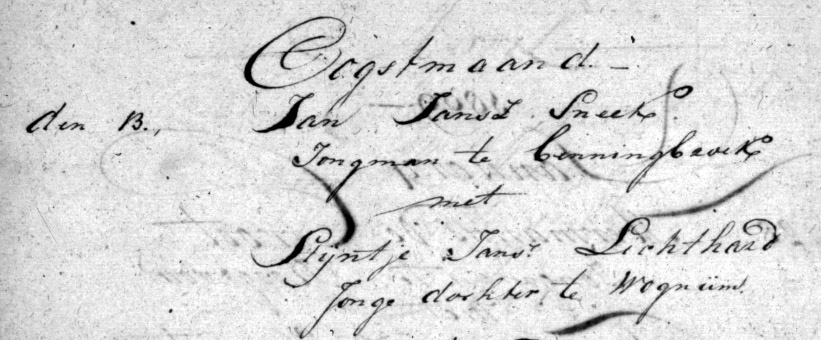 Oogstmaand. —
den 13., Jan Jansz Sneek.
Jongman te Benningbroek
met
Stijntje Jansr Lichthard
Jonge dochter, te Wognüm.